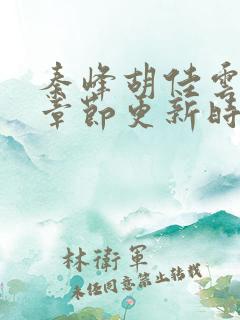 秦峰胡佳雲
章節更新時
林衛軍
未任同意禁止轉載